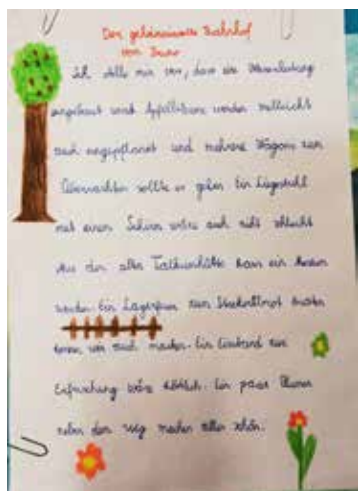 Der geheimnisvolle Bahnhof
von
Ich stelle mir vor, dass eine
angebaut wird. Apfelbäume werden vielleicht
auch angepflanzt und mehrere Wagons zum
Übernachten sollte es geben. Ein Liegestuhl
mit einem Schirm wäre auch nicht schlecht
Aus der alten kann ein
werden. Ein Lagerfeuer zum Steckerlbrot
können wir auch machen. Ein Eisstand zur
Erfrischung wäre köstlich. Ein paar Blumen
neben dem Weg machen alles schön.